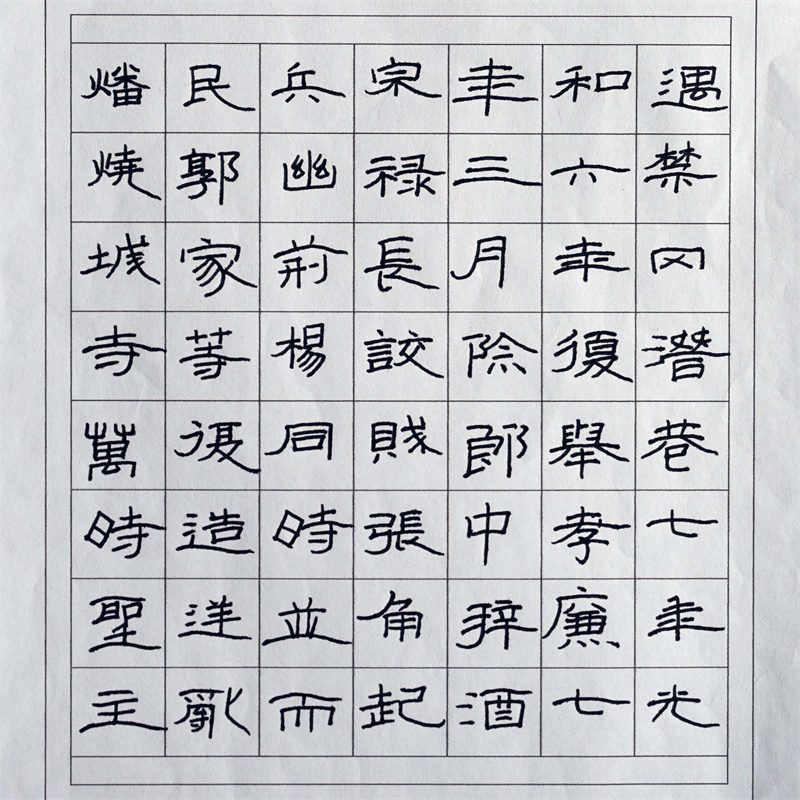 遇禁冈潛巷七年光
和六年復舉孝廉七
年三月除郎中拜酒
宋禄長詨賊張角起
兵幽荊楊同時並而
民郭家等復造逆亂
燔燒城寺萬時聖主